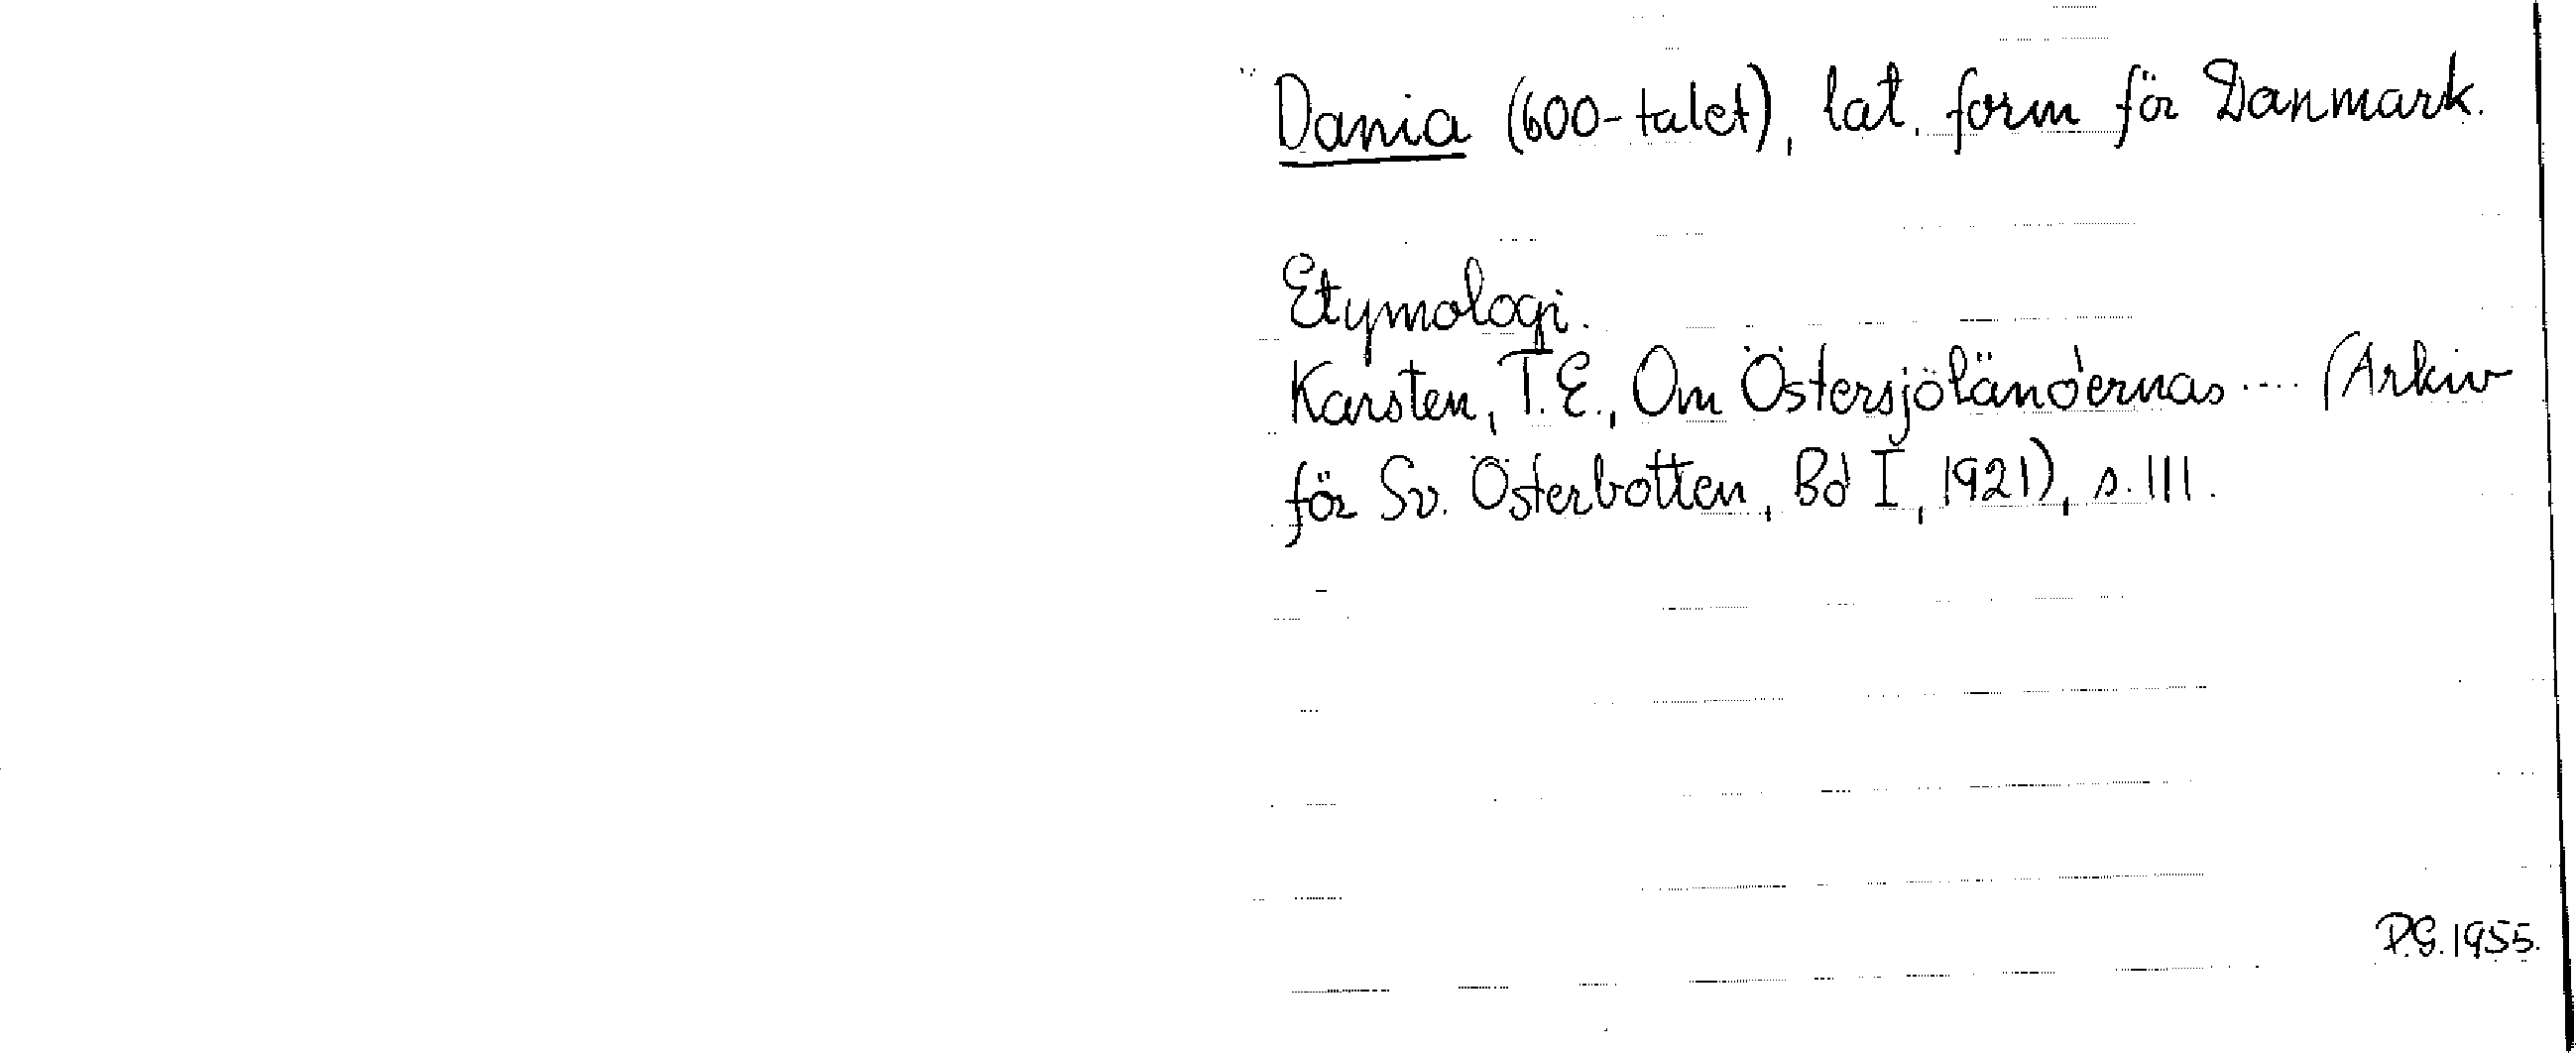 Dania (600-talet), lat. form för Danmark.
Etymologi.
Karsten, T.E., Om Östersjöländernas .... (Arkiv
för Sv. Österbotten, Bd I, 1921), s. 111.
P.G. 1955.